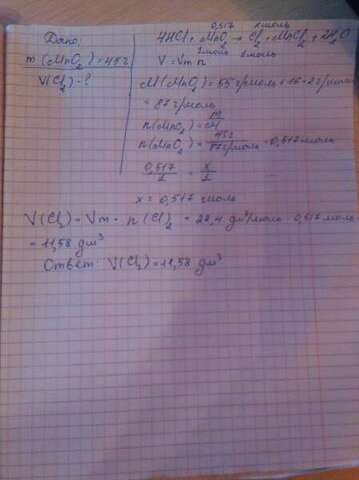 Дано:
m(MnO2)=45г
V(Cl2)-?
0,517 x моль
4HCl+MnO2→Cl2+MnCl2+2H2O
1моль 1моль
V=Vm·n
M(MnO2)=55 г/моль+16·2г/моль
=87 г/моль
n(MnO2)=m/M
n(MnO2)=45г/87г/моль=0,517 моль
0,517/1=x/1
x=0,517 моль
V(Cl2)=Vm·n(Cl)2=22,4 дм³/моль·0,517 моль
=11,58 дм³
Ответ: V(Cl2)=11,58 дм³